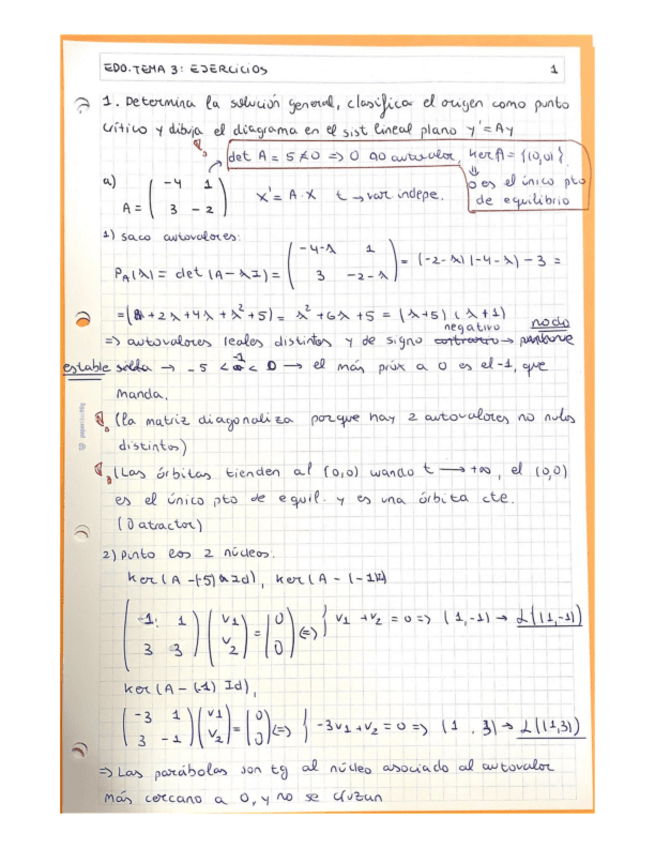 EDO. TEMA 3: EJERCICIOS 1
1. Determina la solución general, clasifica el origen como punto
crítico y dibuja el diagrama en el sist lineal plano y' = Ay
det A = 5 ≠ 0 => 0 no autovalor, Ker A = {(0,0)}.
⇓
0 es el único pto
de equilibrio
a) A = ( -4 1
3 -2 ) X' = A·X t → var indepe.
1) Saco autovalores:
P_A(λ) = det (A - λI) = ( -4-λ 1
3 -2-λ ) = (-2-λ)(-4-λ) - 3 =
= (8 + 2λ + 4λ + λ² + 5) = λ² + 6λ + 5 = (λ+5) (λ+1)
=> autovalores reales distintos y de signo contrario negativo → nodo
estable silla → -5 < -1 < 0 → el más próx a 0 es el -1, que
manda.
(la matriz diagonaliza porque hay 2 autovalores no nulos
distintos)
(Las órbitas tienden al (0,0) cuando t → +∞, el (0,0)
es el único pto de equil. y es una órbita cte.
(0 atractor)
2) Pinto los 2 núcleos.
Ker (A - (-5) Id), Ker (A - (-1)Id)
( -1 1
3 3 ) ( v1
v2 ) = ( 0
0 ) <=> { v1 + v2 = 0 => (1,-1) → L{(1,-1)}
Ker (A - (-1) Id),
( -3 1
3 -1 ) ( v1
v2 ) = ( 0
0 ) <=> { -3v1 + v2 = 0 => (1, 3) → L{(1,3)}
=> Las parábolas son tg al núcleo asociado al autovalor
más cercano a 0, y no se cruzan